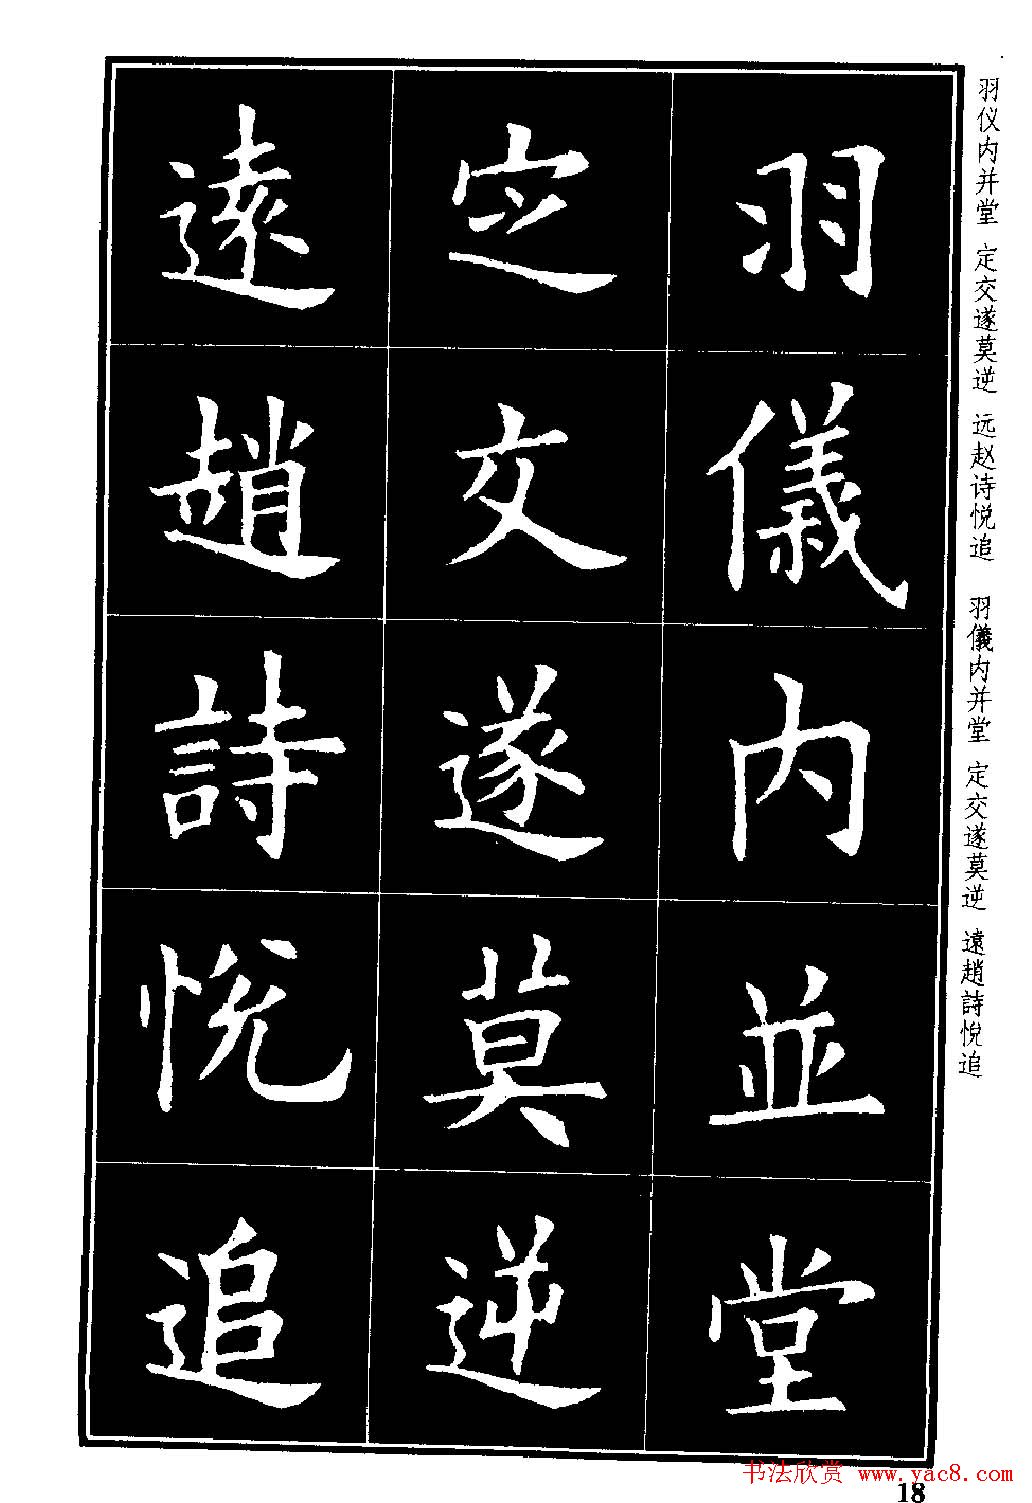 羽儀内並堂
定交遂莫逆
遠趙詩悅追
羽仪内并堂 定交遂莫逆 远赵诗悦追 羽儀内并堂 定交遂莫逆 遠趙詩悅追
18
书法欣赏 www.yac8.com